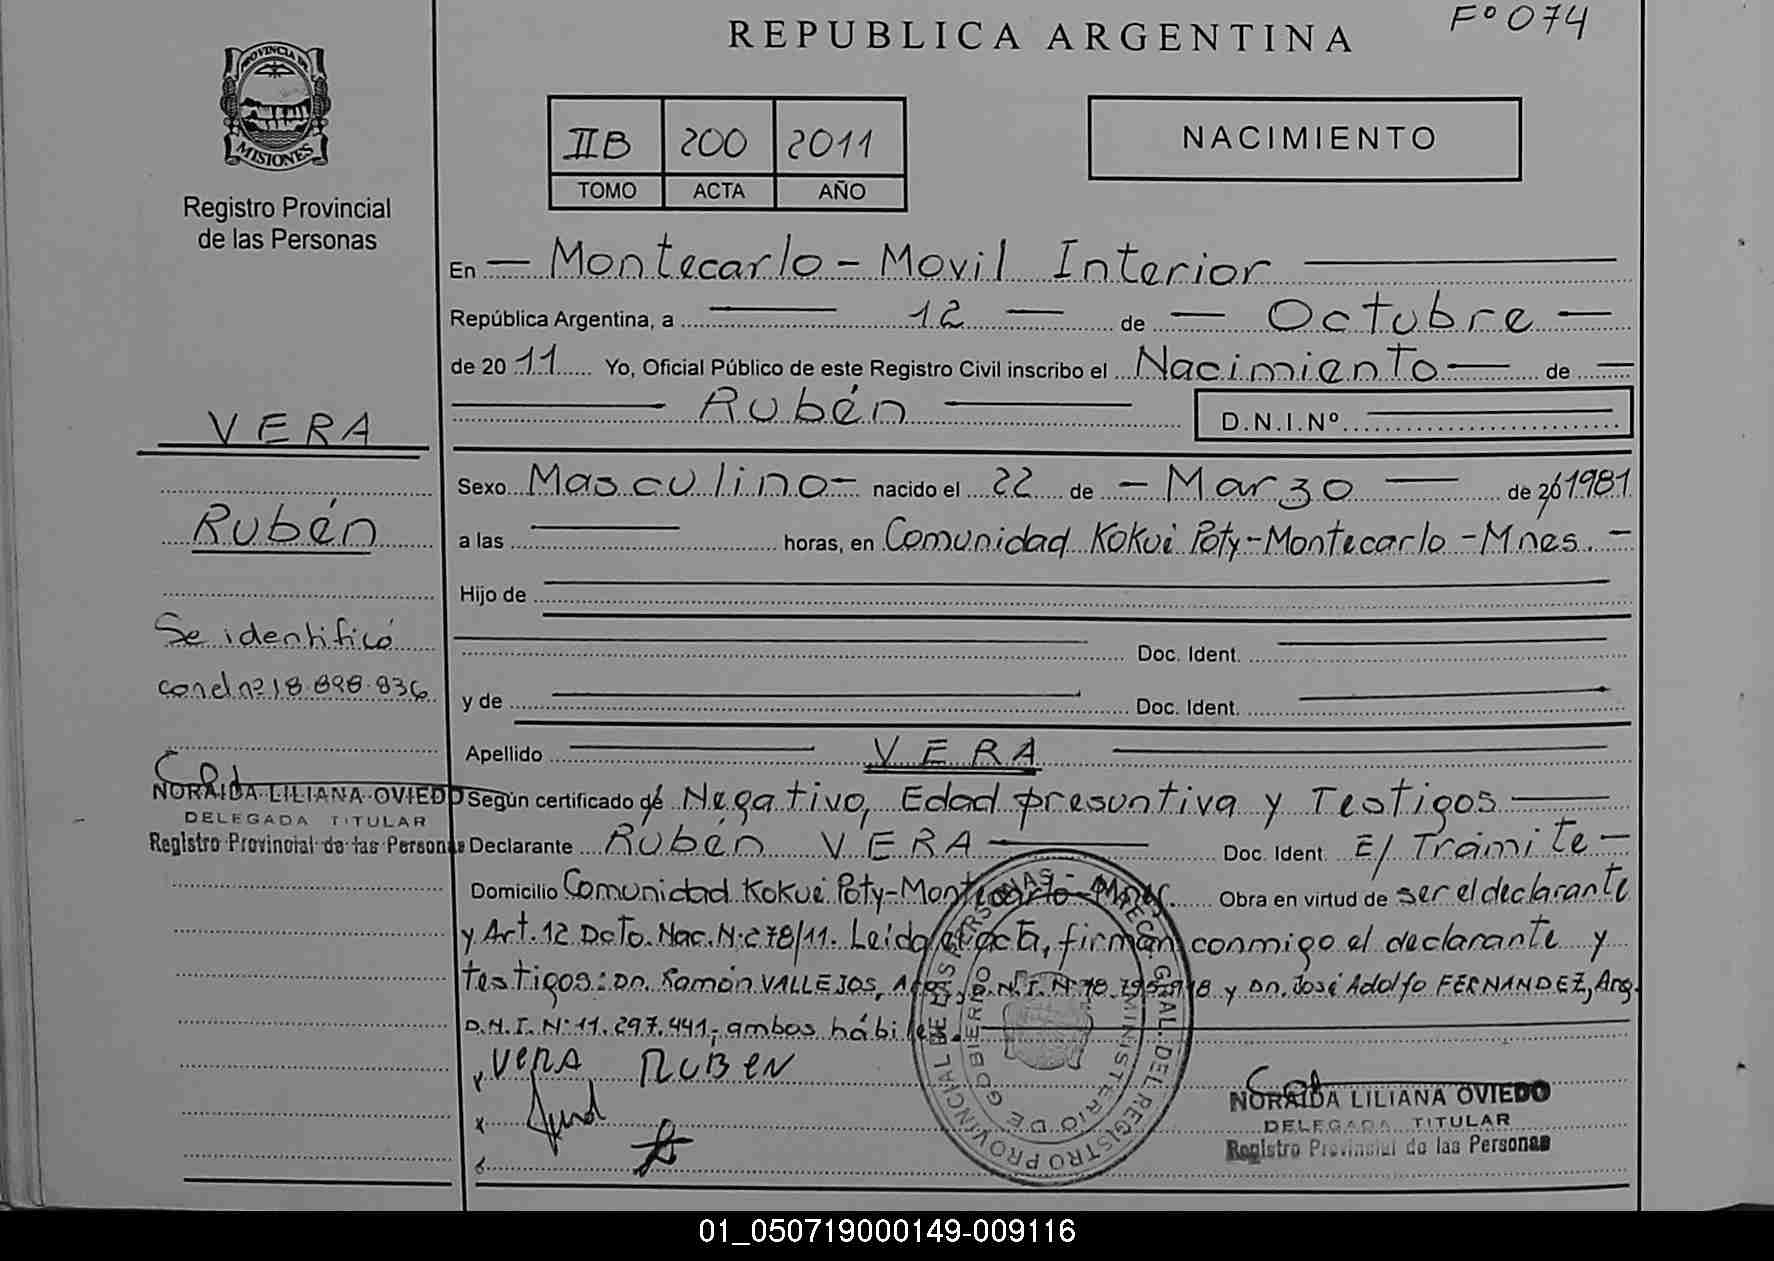 Fº 074
REPUBLICA ARGENTINA
PROVINCIA DE
MISIONES
Registro Provincial
de las Personas
IIB 200 2011
TOMO ACTA AÑO
NACIMIENTO
En — Montecarlo - Movil Interior —
República Argentina, a — 12 — de — Octubre —
de 20 11 Yo, Oficial Público de este Registro Civil inscribo el Nacimiento — de —
— Rubén — D.N.I.Nº
VERA
Rubén
Se identificó
con el nº 18.898.836
NORAIDA LILIANA OVIEDO
DELEGADA TITULAR
Registro Provincial de las Personas
Sexo Masculino - nacido el 22 de - Marzo — de 20 1981
a las — horas, en Comunidad Kokuei Poty - Montecarlo - Mnes. -
Hijo de
Doc. Ident.
y de Doc. Ident.
Apellido — VERA —
Según certificado de Negativo, Edad presuntiva y Testigos —
Declarante Rubén VERA — Doc. Ident. E/ Trámite —
Domicilio Comunidad Kokuei Poty - Montecarlo - Mnes. Obra en virtud de ser el declarante
y Art. 12 Dcto. Nac. Nº 278/11. Leida el acta, firman conmigo el declarante y
testigos: Dn. Ramón VALLEJOS, D.N.I. Nº y Dn. José Adolfo FERNANDEZ, Arg.
D.N.I. Nº 11.297.441, ambos hábiles.
VERA RUBEN
REGISTRO PROVINCIAL DE LAS PERSONAS - DIREC. GRAL. DEL
MINISTERIO DE GOBIERNO
NORAIDA LILIANA OVIEDO
DELEGADA TITULAR
Registro Provincial de las Personas
01_050719000149-009116